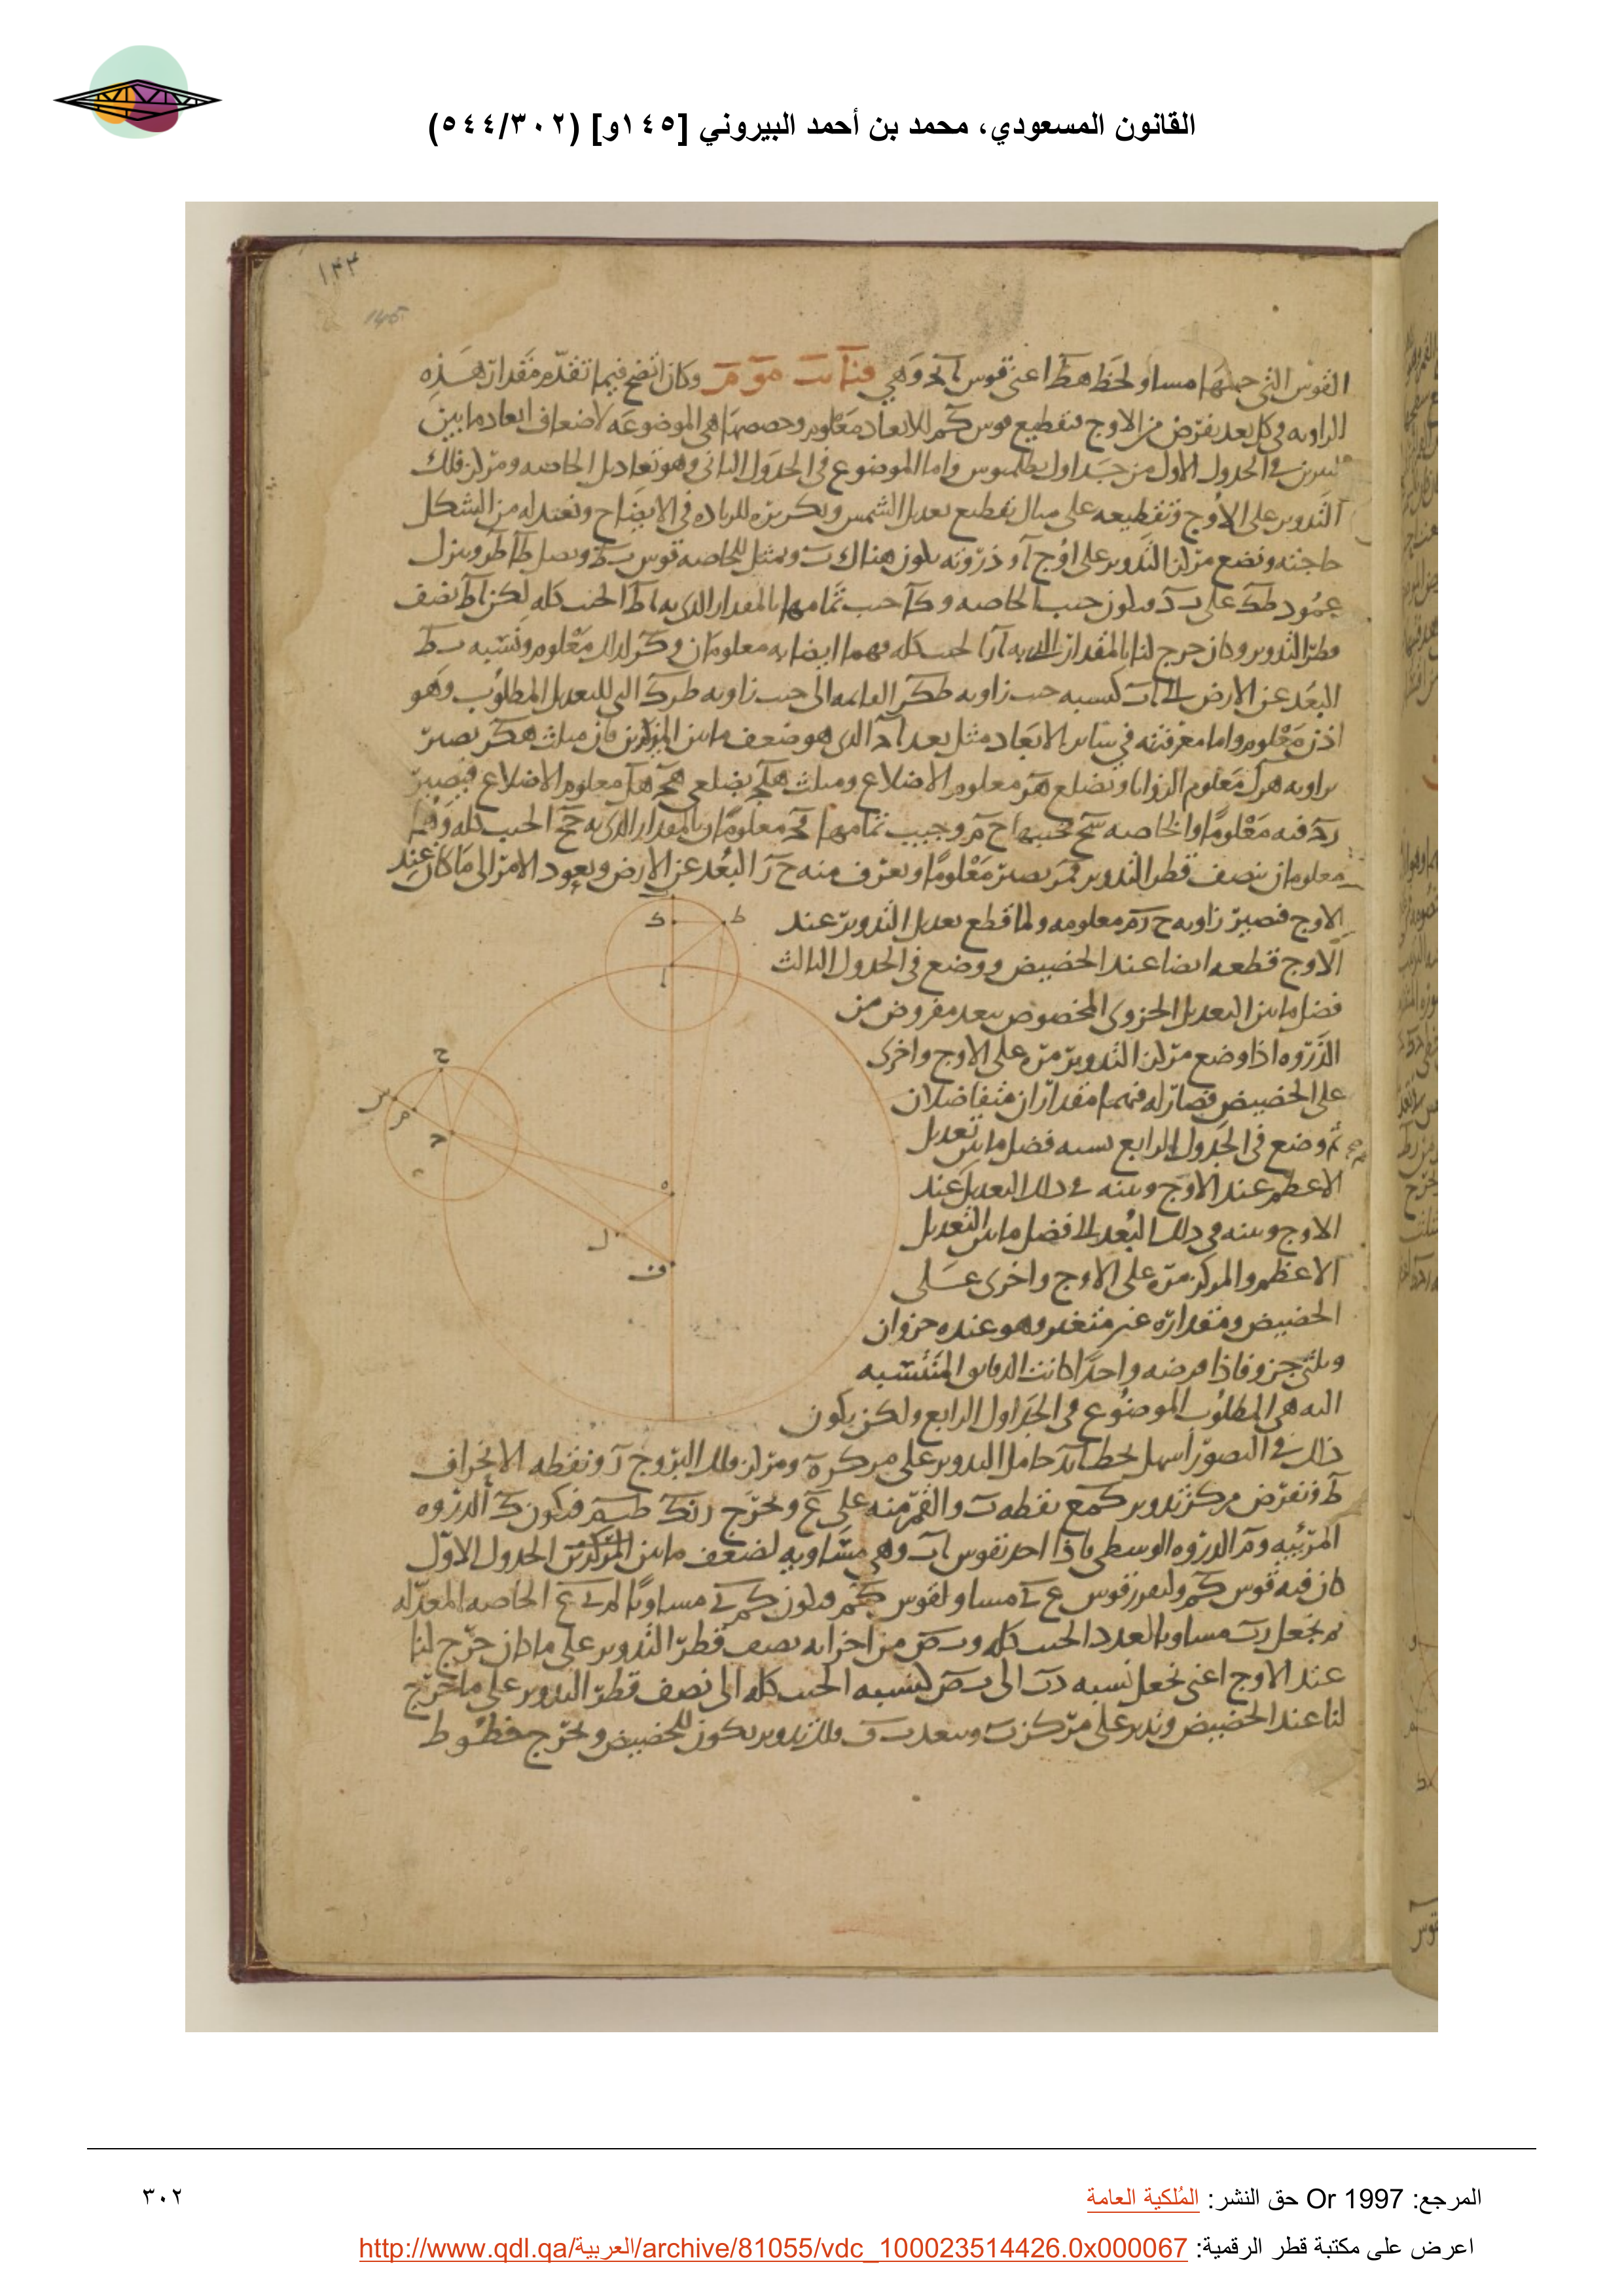 القانون المسعودي، محمد بن أحمد البيروني [١٤٥و] (٥٤٤/٣٠٢)
١٤٣
145
القوس التى جيبها مساو لخط هط اعنى قوس وهي وكان اتضح فيما تقدم مقدار هذه
الزاويه في كل بعد يفرض من الاوج فتقطيع قوس كم للابعاد معلوم وحصصها هى الموضوعه لاضعاف ابعاد ما بين
النيرين في الجدول الاول من جداول بطلميوس واما الموضوع فى الجدول الثانى وهو تعاديل الخاصه ومركز فلك
التدوير على الاوج وتقطيعه على مثال تقطيع تعديل الشمس وتكريره للزياده فى الايضاح ونعتد له من الشكل
حاجته ونضع مركز التدوير على اوج آ وذروته يكون هناك ب ونمثل للخاصه قوس بط ونصل طا طر وننزل
عمود طك على ب د فيكون جيب الخاصه وكا جيب تمامها بالمقدار الذى به اط الجيب كله لكن اط نصف
قطر التدوير وكان خرج لنا بالمقدار الذى به ار الجيب كله فهما ايضا به معلومان وكر لذلك معلوم ونسبه
البعد عن الارض الى كنسبه جيب زاويه طكر القائمه الى جيب زاويه طرك التى للتعديل المطلوب وهو
اذن معلوم واما معرفته في سائر الابعاد مثل بعد اح الذى هو ضعف ما بين النيرين فان مثلث هكر يصير
بزاويه هرك معلوم الزوايا وبضلع هر معلوم الاضلاع ومثلث بضلعى معلوم الاضلاع فيصير
رح فيه معلوما والخاصه فجيبها ح م وجيب تمامها مح معلومان بالمقدار الذى به حح الجيب كله وهما
معلومان بنصف قطر التدوير فمر يصير معلوما ونعرف منه ح ر البعد عن الارض ويعود الامر الى ما كان عند
الاوج فتصير زاويه ح رم معلومه ولما قطع تعديل التدوير عند
الاوج قطعه ايضا عند الحضيض ووضع فى الجدول الثالث
فضل ما بين التعديل الجزوى المخصوص ببعد مفروض من
الذروه اذا وضع مركز التدوير مره على الاوج واخرى
على الحضيض فصار له فيهما مقداران متفاضلان
ثم وضع فى الجدول الرابع نسبه فضل ما بين تعديل
الاعظم عند الاوج وبينه في ذلك البعد عند
الاوج وبينه في ذلك البعد الى فضل ما بين التعديل
الاعظم والمركز مره على الاوج واخرى على
الحضيض ومقداره غير متغير وهو عنده جزوان
وثلثى جزو فاذا فرضه واحدا كانت الدقائق المنتسبه
اليه هى المطلوب الموضوع في الجداول الرابع ولكن يكون
ذلك في التصور اسهل نخط حامل التدوير على مركز ه ومركز فلك البروج ر ونقطه الانحراف
ط ونفرض مركز تدوير كمع نقطه ب والقمر منه على ع ونخرج فيكون ك الذروه
المرئيه وم الذروه الوسطى فاذا اخذ بقوس اب وهى مساويه لضعف ما بين المركزين الجدول الاول
كان فيه قوس كم ولنفرز قوس مساو لقوس كم فيكون مساويا الخاصه المعدله
ثم نجعل رب مساويا لعدد الجيب كله وب ص من اجزائه نصف قطر التدوير على ما كان خرج لنا
عند الاوج اعنى نجعل نسبه رب الى ب ص كنسبه الجيب كله الى نصف قطر التدوير على ما خرج
لنا عند الحضيض وندير على مركز ب وببعد ب ف فلك تدوير يكون للحضيض ونخرج خطوط
ك
ط
ا
ح
م
ح
ه
ل
المرجع: Or 1997 حق النشر: المُلكية العامة
٣٠٢
اعرض على مكتبة قطر الرقمية: http://www.qdl.qa/العربية/archive/81055/vdc_100023514426.0x000067